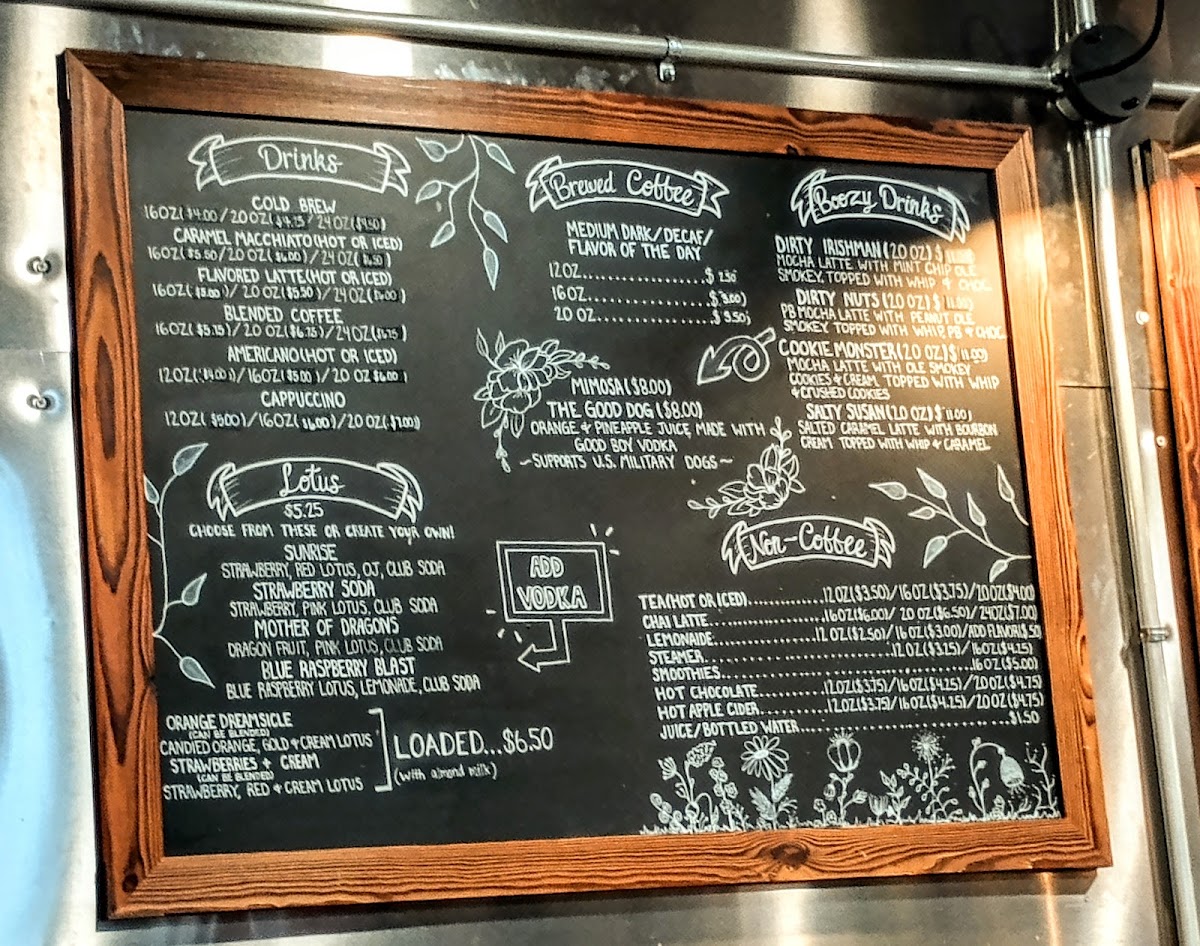 Drinks
COLD BREW
16OZ($4.00/20OZ($4.75/24OZ($4.50)
CARAMEL MACCHIATO(HOT OR ICED)
16OZ($5.50/20OZ($6.00)/24OZ($6.50)
FLAVORED LATTE(HOT OR ICED)
16OZ($5.00)/20OZ($5.50)/24OZ($6.00)
BLENDED COFFEE
16OZ($5.75)/20OZ($6.75)/24OZ(
AMERICANO(HOT OR ICED)
12OZ($4.00)/16OZ($5.00)/20 OZ $6.00)
CAPPUCCINO
12OZ( $5.00)/16OZ($6.00)/20 OZ($7.00)
Lotus
$5.25
CHOOSE FROM THESE OR CREATE YOUR OWN!
SUNRISE
STRAWBERRY, RED LOTUS, OJ, CLUB SODA
STRAWBERRY SODA
STRAWBERRY, PINK LOTUS, CLUB SODA
MOTHER OF DRAGONS
DRAGON FRUIT, PINK LOTUS, CLUB SODA
BLUE RASPBERRY BLAST
BLUE RASPBERRY LOTUS, LEMONADE, CLUB SODA
ORANGE DREAMSICLE
(CAN BE BLENDED)
CANDIED ORANGE, GOLD & CREAM LOTUS
STRAWBERRIES + CREAM
(CAN BE BLENDED)
STRAWBERRY, RED & CREAM LOTUS
LOADED...$6.50
(with almond milk)
Brewed Coffee
MEDIUM DARK/DECAF/
FLAVOR OF THE DAY
12OZ...............$ 2.50
16OZ...............$ 3.00)
20 OZ...............$ 3.50)
MIMOSA($8.00)
THE GOOD DOG ($8.00)
ORANGE & PINEAPPLE JUICE, MADE WITH
GOOD BOY VODKA
~SUPPORTS U.S. MILITARY DOGS~
ADD
VODKA
Boozy Drinks
DIRTY IRISHMAN(20 OZ)$ 11.00)
MOCHA LATTE WITH MINT CHIP OLE
SMOKEY, TOPPED WITH WHIP & CHOC.
DIRTY NUTS (20 OZ)$ 11.00)
PB MOCHA LATTE WITH PEANUT OLE
SMOKEY TOPPED WITH WHIP, PB & CHOC.
COOKIE MONSTER(20 OZ)$ 11.00)
MOCHA LATTE WITH OLE SMOKEY
COOKIES & CREAM, TOPPED WITH WHIP
& CRUSHED COOKIES
SALTY SUSAN(20 OZ)$ 11.00)
SALTED CARAMEL LATTE WITH BOURBON
CREAM TOPPED WITH WHIP & CARAMEL
Non-Coffee
TEA(HOT OR ICED)...............12OZ($3.50)/16OZ($3.75)/20OZ($4.00)
CHAI LATTE...............16OZ($6.00)/ 20OZ($6.50)/ 24OZ($7.00)
LEMONAIDE...............12 OZ($2.50)/ 16OZ($3.00)/ADD FLAVOR($.50)
STEAMER...............12OZ($3.25)/ 16OZ($4.25)
SMOOTHIES...............16OZ($5.00)
HOT CHOCOLATE...............12OZ($3.75)/16OZ($4.25)/20OZ($4.75)
HOT APPLE CIDER...............12OZ($3.75)/16OZ($4.25)/20OZ($4.75)
JUICE/BOTTLED WATER...............$1.50